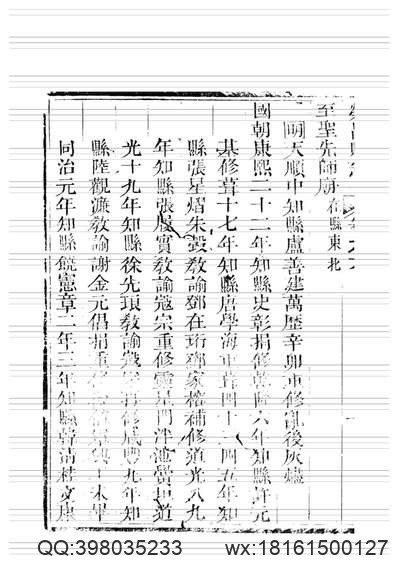 至聖先師廟在縣東北
明天順中知縣盧善建萬歷辛卯重修亂後灰燼
國朝康熙二十二年知縣史彰捐修乾隆六年知縣許元
基修葺十七年知縣唐學海重葺四十二四五年知
縣張星熠朱毅教諭鄧在珩鄧家榕補修道光八九
年知縣張履實教諭寇宗重修靈星門泮池黌垣道
光十九年知縣徐先琅教諭修咸豐九年知
縣陸觀濂教諭謝金元倡捐重未畢
同治元年知縣饒憲章二年三年知縣清桂文康
QQ:398035233 wx:18161500127